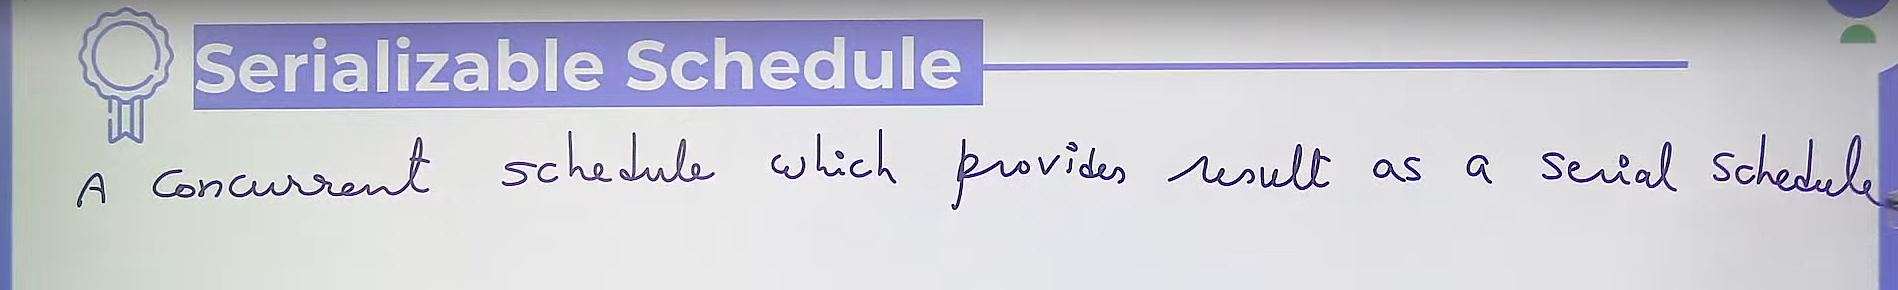 Serializable Schedule
A concurrent schedule which provides result as a serial schedule